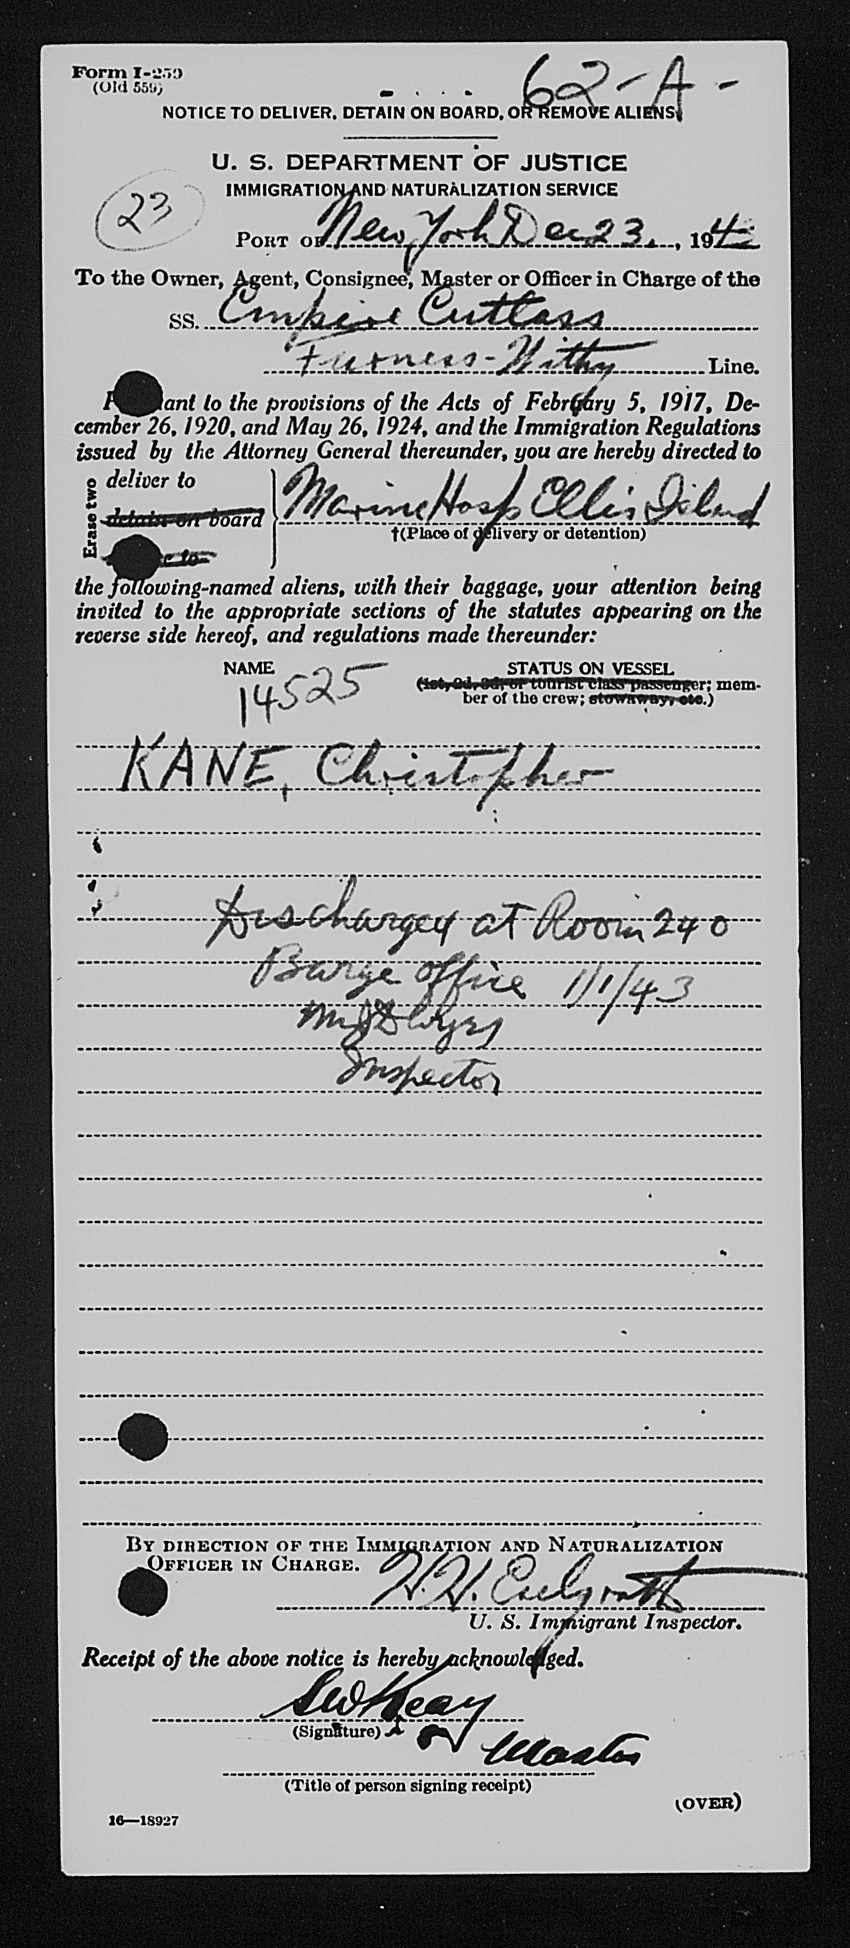 Form I-259
(Old 559)
62-A-
NOTICE TO DELIVER, DETAIN ON BOARD, OR REMOVE ALIENS
U. S. DEPARTMENT OF JUSTICE
IMMIGRATION AND NATURALIZATION SERVICE
23
PORT OF New York Dec 23, 194
To the Owner, Agent, Consignee, Master or Officer in Charge of the
SS. Empire Cutlass
Furness-Withy Line.
ant to the provisions of the Acts of February 5, 1917, De-
cember 26, 1920, and May 26, 1924, and the Immigration Regulations
issued by the Attorney General thereunder, you are hereby directed to
Erase two
deliver to
detain on board
e to
Marine Hosp Ellis Island
†(Place of delivery or detention)
the following-named aliens, with their baggage, your attention being
invited to the appropriate sections of the statutes appearing on the
reverse side hereof, and regulations made thereunder:
NAME STATUS ON VESSEL
14525 (1st, 2d, 3d, or tourist class passenger; mem-
ber of the crew; stowaway, etc.)
KANE, Christopher
Discharged at Room 240
Barge office 1/1/43
Inspector
BY DIRECTION OF THE IMMIGRATION AND NATURALIZATION
OFFICER IN CHARGE.
H. H.
U. S. Immigrant Inspector.
Receipt of the above notice is hereby acknowledged.
(Signature)
Master
(Title of person signing receipt)
(OVER)
16—18927